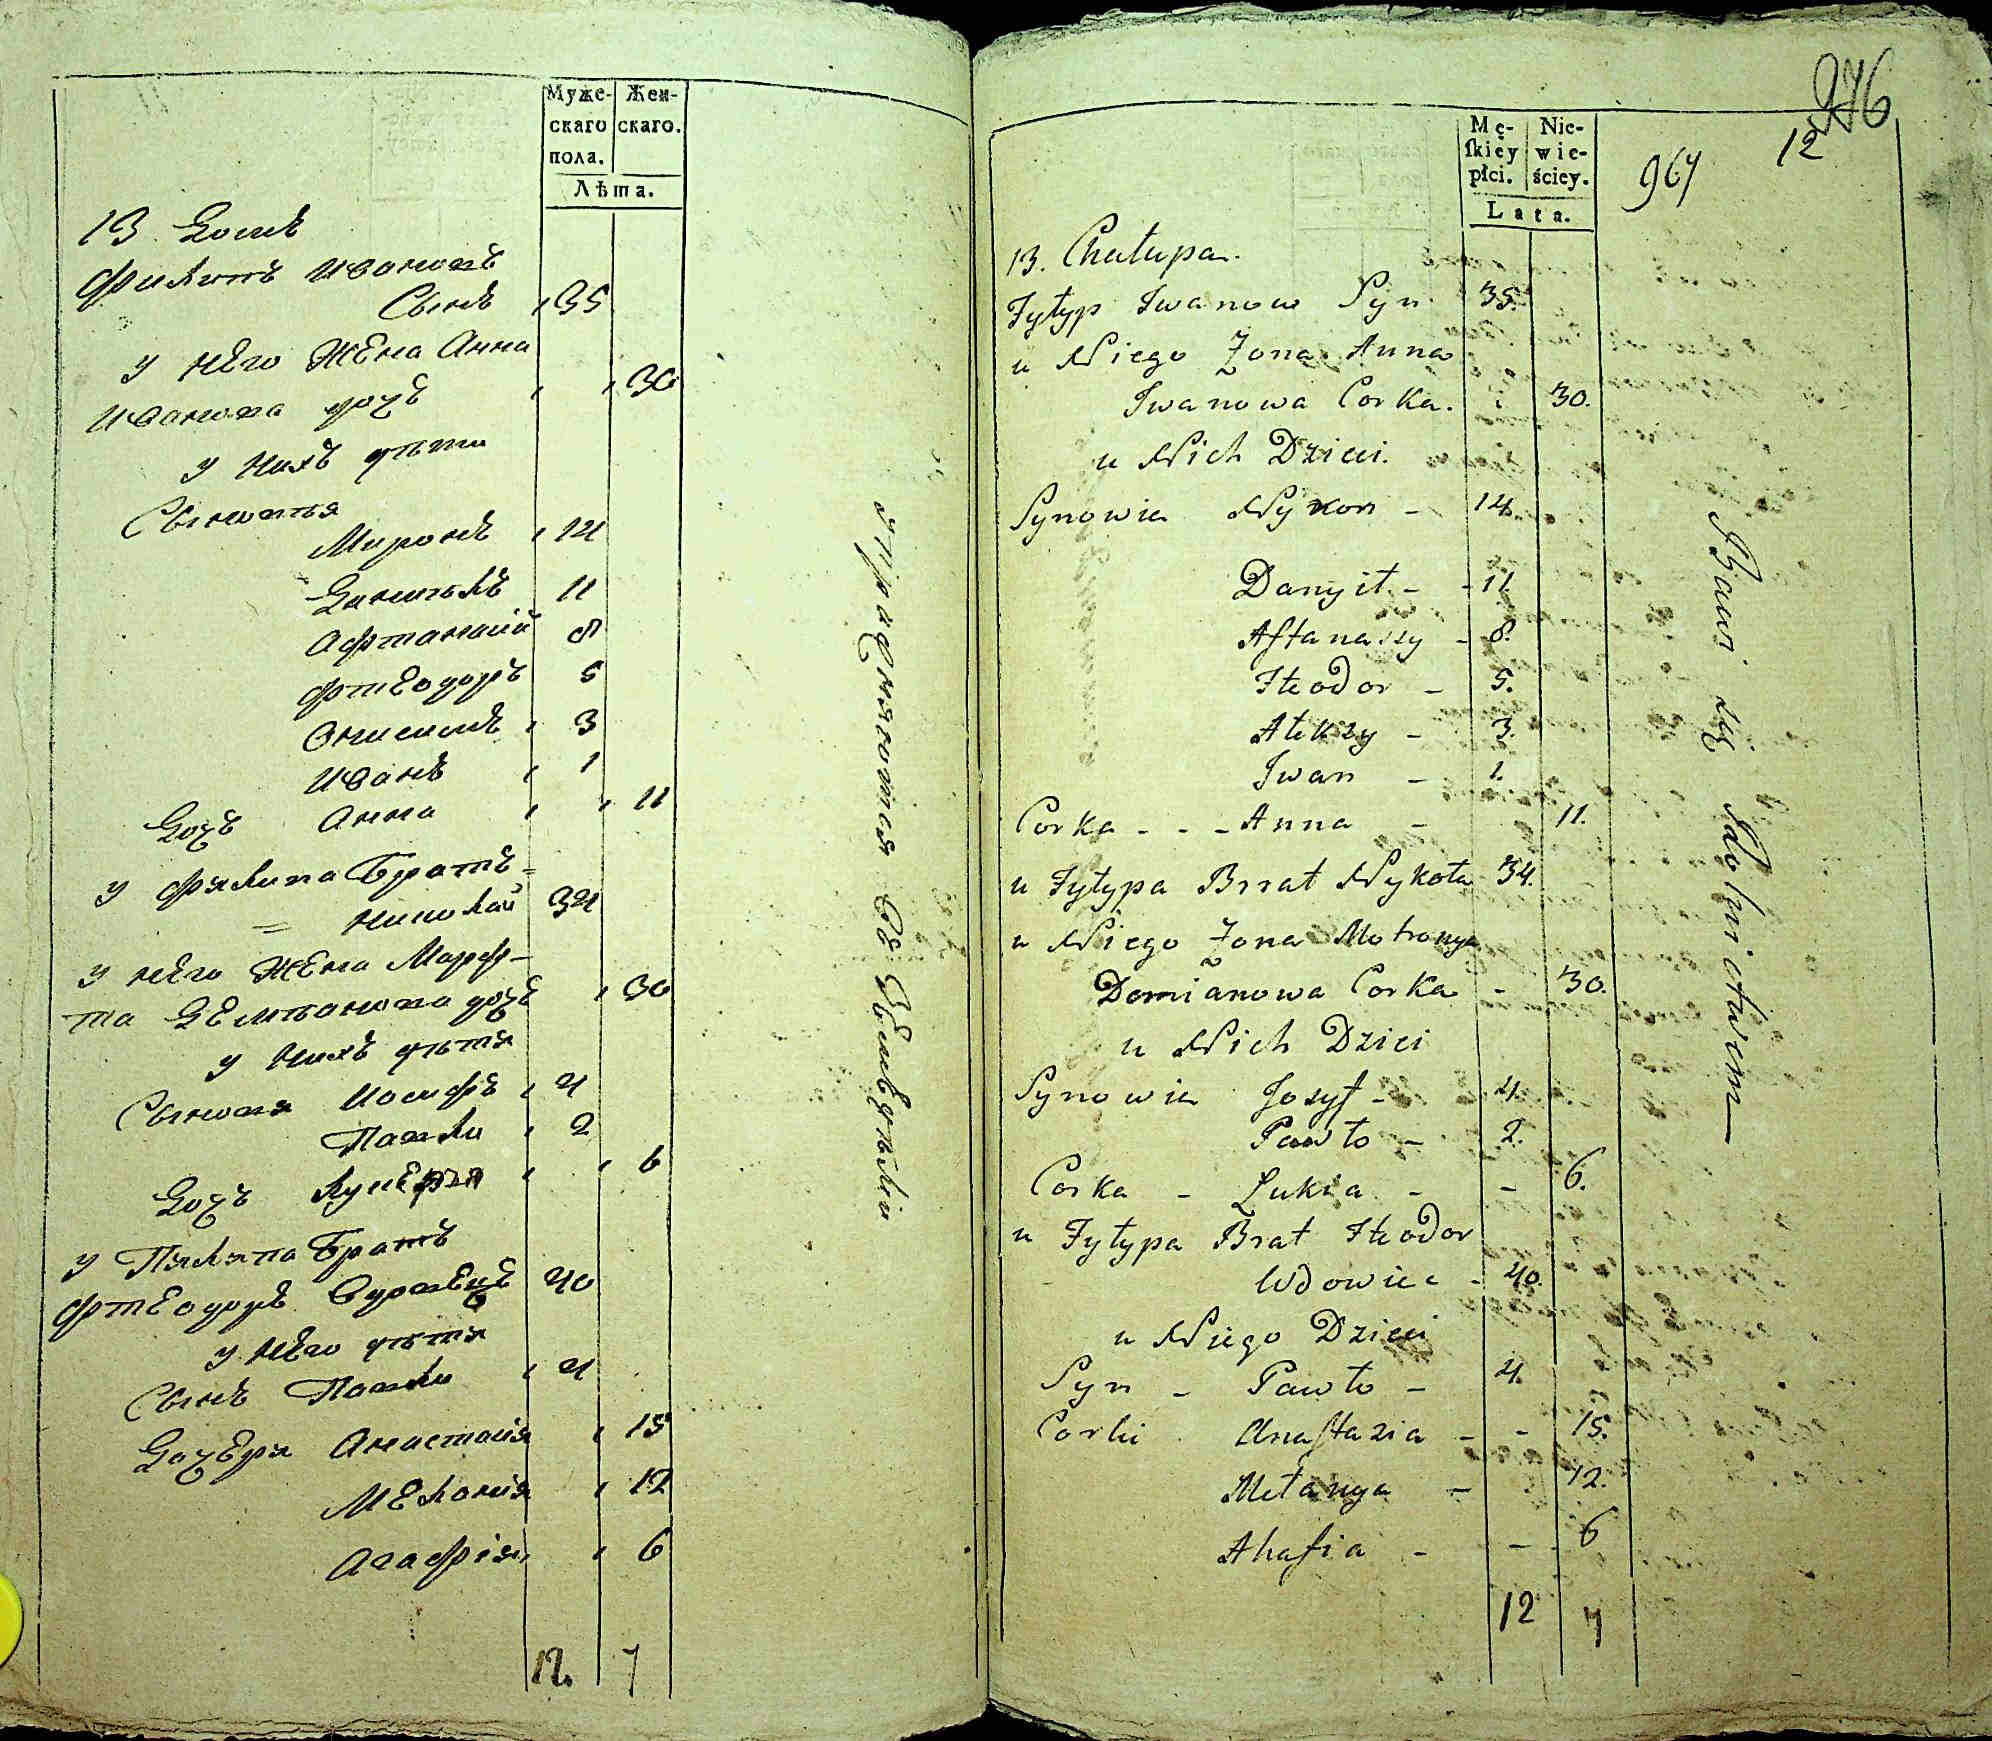 Муже-
скаго
пола.
Жен-
скаго.
Лѣта.
13 Домъ
Филипъ Ивановъ
Сынъ 35
у него Жена Анна
Иванова дочь 30
у нихъ дѣти
Сыновья
Миронъ 14
Данилъ 11
Афтанасій 8
Фтеодоръ 5
Онисимъ 3
Иванъ 1
Дочь Анна 11
у Филипа Братъ =
= Николай 34
у него Жена Марф-
та Демьянова дочь 30
у нихъ дѣти
Сыновья Иосифъ 4
Павли 2
Дочь 6
у Пилипа Братъ
Фтеодоръ 40
у него дѣти
Сынъ Павли 4
Дочери Анастасія 15
Меланія 12
Агафія 6
12. 7
Упражняются въ Земледѣліи
276
12
967
Mę-
skiey
płci.
Nie-
wie-
ściey.
Lata.
13. Chałupa.
Fyłyp Iwanow Syn 35.
u Niego Żona Anna
Iwanowa Corka. 30.
u Nich Dzieci.
Synowie Nykon - 14.
Danyił - - 11.
Aftanazy - 8.
Fteodor - 5.
Alexzy - 3.
Iwan - 1.
Corka - - - Anna - 11.
u Fyłypa Brrat Nykoła 34.
u Niego Żona Motronya
Domianowa Corka - 30.
u Nich Dzieci
Synowie Jozyf - 4.
Pawło - 2.
Corka - Łukia - - 6.
u Fyłypa Brat Fteodor
Wdowiec - 40.
u Niego Dzieci
Syn - Pawło - 4.
Corki Anastazia - - 15.
Mełanya - 12.
Ahafia - - - 6
12 7
Bawi się Rolnictwem